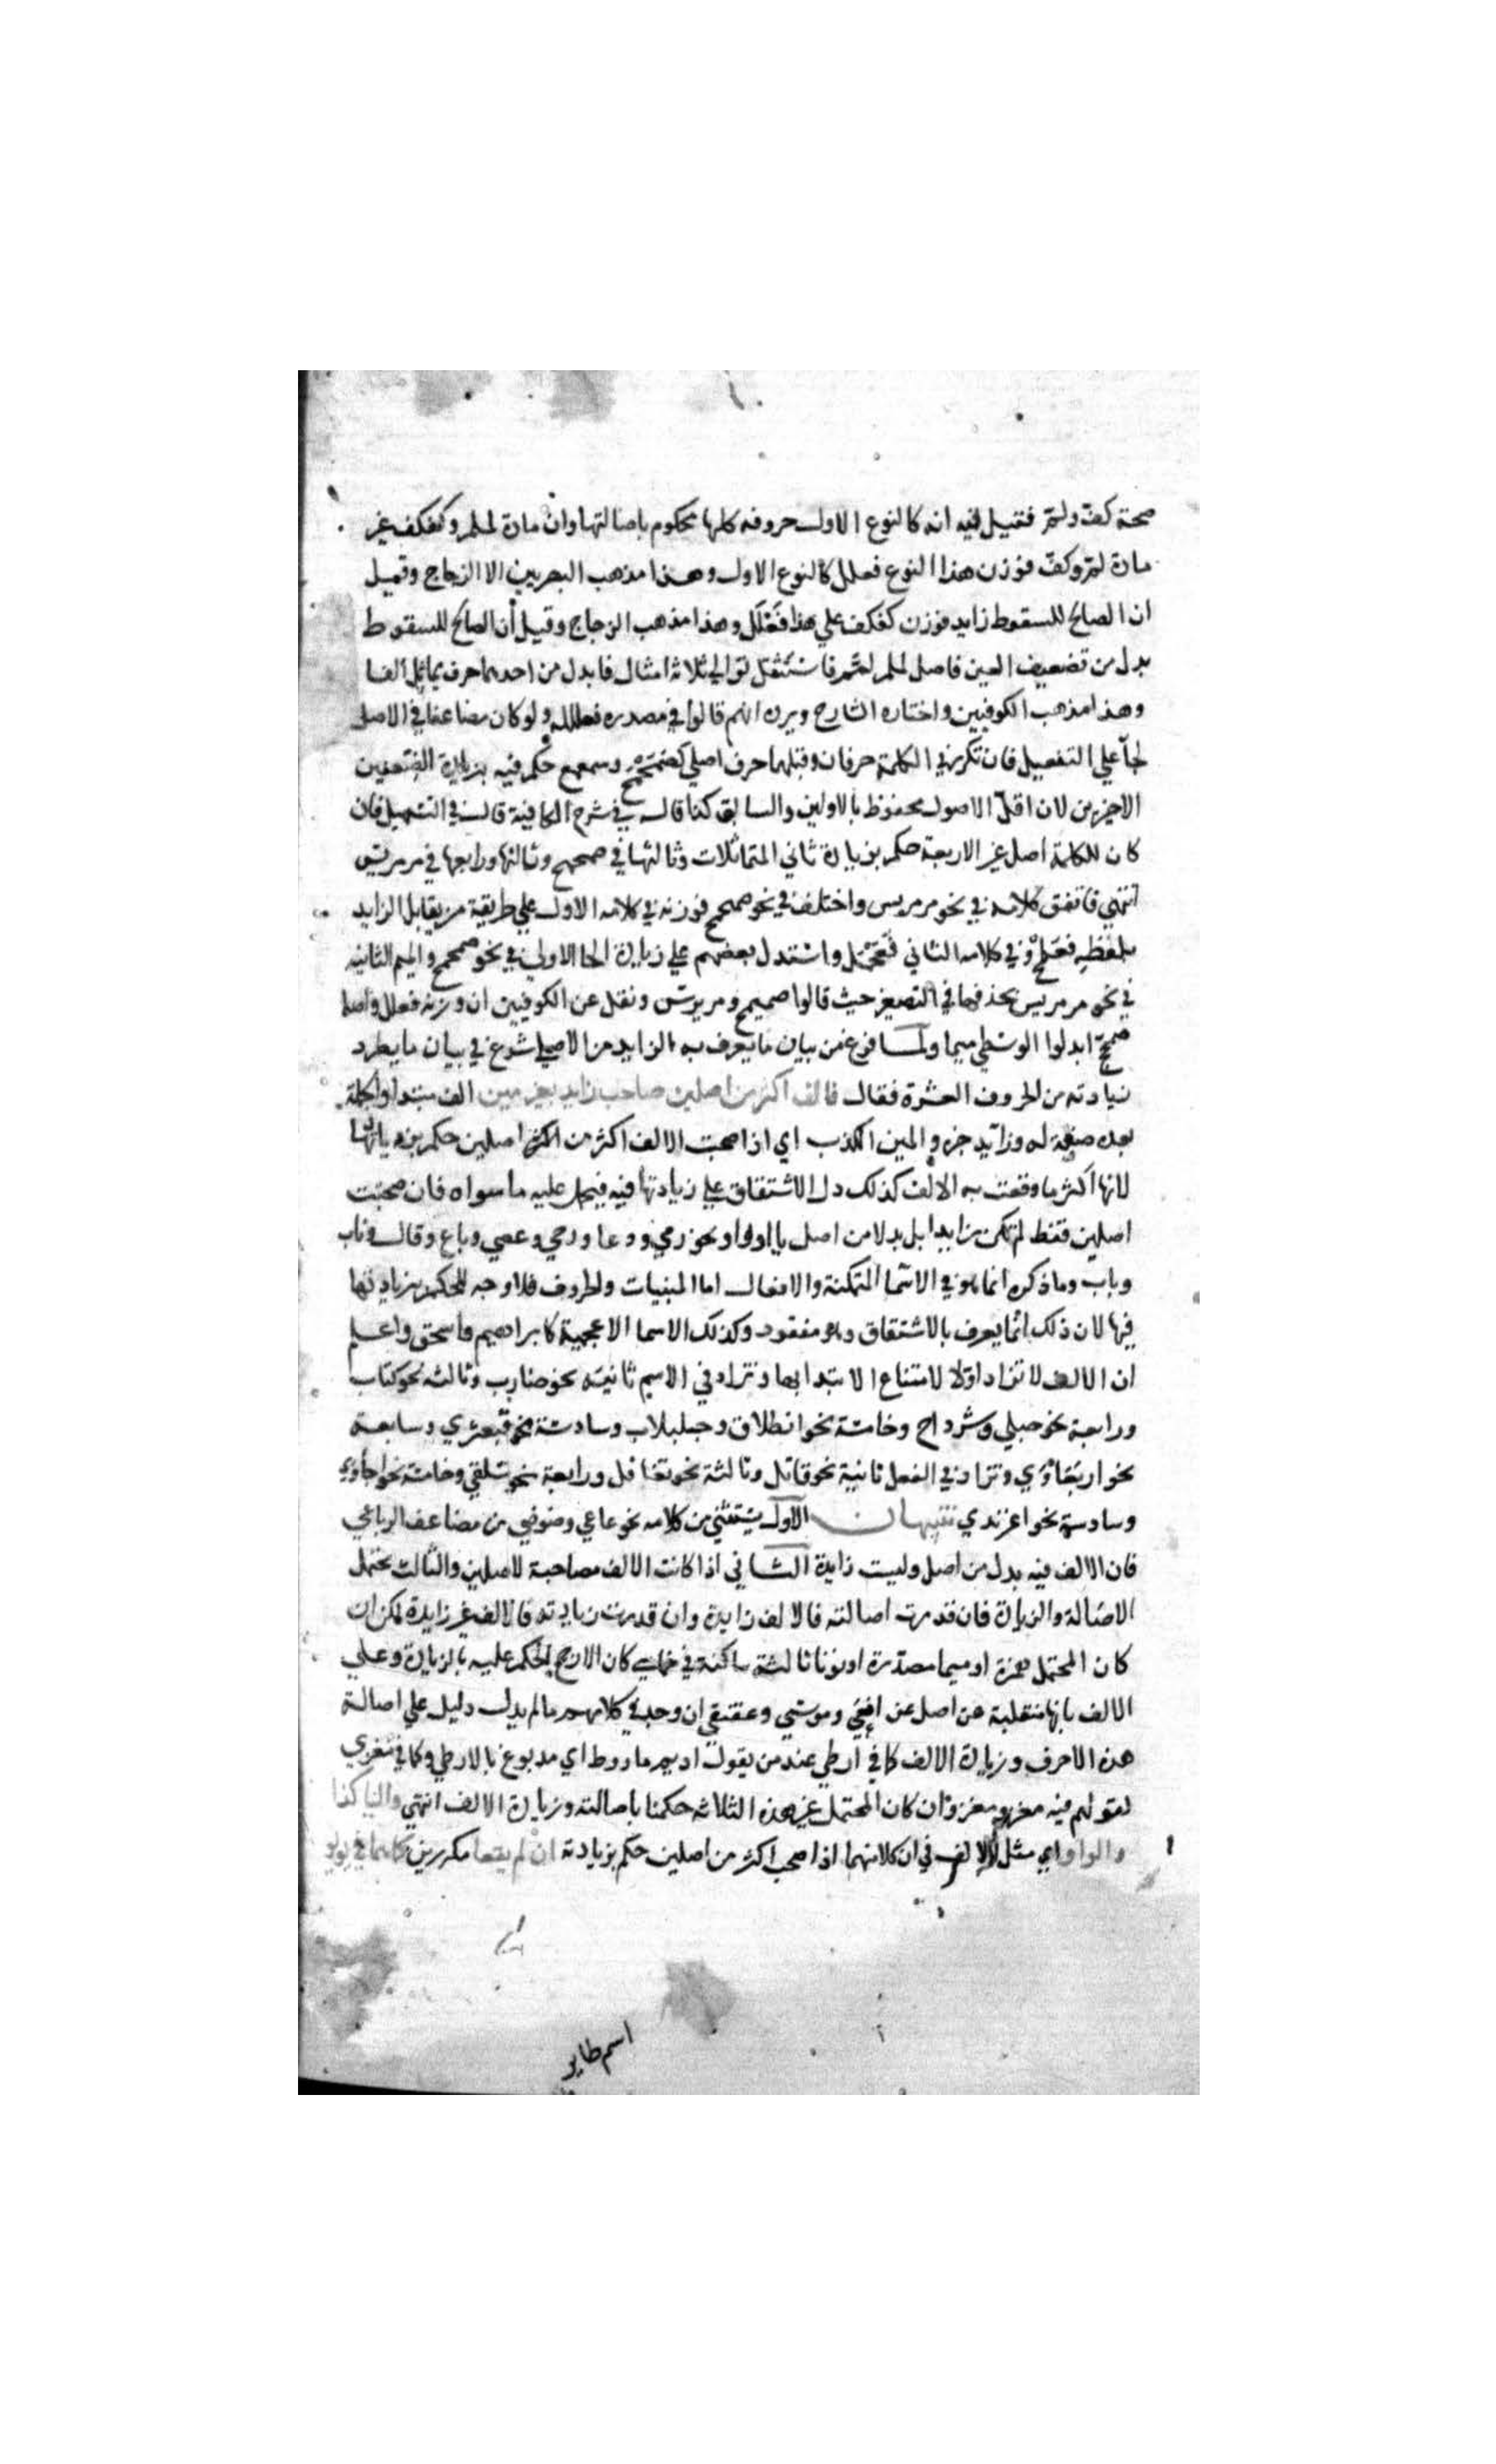 صحة كف ولمّ فقيل فيه انه كالنوع الاول حروفه كلها محكوم باصالتها وان مادة لملم وكفكف غير
مادة لمّ وكفّ فوزن هذا النوع فعلل كالنوع الاول وهذا مذهب البصريين الا الزجاج وقيل
ان الصالح للسقوط زايد فوزن كفكف على هذا فَعْكَل وهذا مذهب الزجاج وقيل ان الصالح للسقوط
بدل من تضعيف العين فاصل لملم لمّم فاستثقل توالي ثلاثة امثال فابدل من احدهما حرف يماثل الفا
وهذا مذهب الكوفيين واختاره الشارح ويرده انهم قالوا في مصدره فعللة ولو كان مضاعفا في الاصل
لجآ على التفعيل فان تكرر في الكلمة حرفان وقبلهما حرف اصلي كصمحمح وسمعمع حكم فيه بزيادة الضعفين
الاخيرين لان اقل الاصول محفوظ بالاولين والسابق كذا قاله في شرح الكافية قال في التسهيل فان
كان للكلمة اصل غير الاربعة حكم بزيادة ثاني المتماثلات وثالثها في صمحمح وثالثها ورابعها في مرمريس
انتهى فاتفق كلامه في نحو مرمريس واختلف في نحو صمحمح فوزنه في كلامه الاول على طريقة من يقابل الزايد
بلفظه فعلمح وفي كلامه الثاني فَعَحْمَل واستدل بعضهم على زيادة الحا الاولى في نحو صمحمح والميم الثانيه
في نحو مرمريس بحذفها في التصغير حيث قالوا صميمح ومريريس ونقل عن الكوفيين ان وزنه فعلل واصله
صمحّح ابدلوا الوسطى ميما ولما فرغ من بيان ما يعرف به الزايد من الاصلي شرع في بيان ما يطرد
زيادته من الحروف العشرة فقال فالف اكثر من اصلين صاحب زايد بغير مين الف مبتدا والجملة
بعده صفة له وزايد خبره والمين الكذب اي اذا صحبت الالف اكثر من اصلين حكم بزيادتها
لانها اكثر ما وقعت به الالف كذلك دل الاشتقاق على زيادتها فيه فيحمل عليه ما سواه فان صحبت
اصلين فقط لم تكن زايدا بل بدلا من اصل يا او واو نحو رمى ودعا ورحى وعصى وباع وقال وناب
وباب وما ذكره انما هو في الاسما المتمكنة والافعال اما المبنيات والحروف فلا وجه للحكم بزيادتها
فيها لان ذلك انما يعرف بالاشتقاق وهو مفقود وكذلك الاسما الاعجمية كابراهيم واسحق واعلم
ان الالف لا تزاد اولا لامتناع الابتدا بها وتزاد في الاسم ثانية نحو ضارب وثالثه نحو كتاب
ورابعة نحو حبلى وسرداح وخامسة نحو انطلاق وحبلبلاب وسادسة نحو قبعثرى وسابعة
نحو اربعاوى وتزاد في الفعل ثانية نحو قاتل وثالثة نحو تغافل ورابعة نحو سلقى وخامسة نحو اجأوى
وسادسة نحو اغرندى تنبيهان الاول يستثنى من كلامه نحو عاعى وضوضى من مضاعف الرباعي
فان الالف فيه بدل من اصل وليست زايدة الثاني اذا كانت الالف مصاحبة لاصلين والثالث يحتمل
الاصالة والزيادة فان قدرت اصالته فالالف زايدة وان قدرت زيادته فالالف غير زايدة لكن ان
كان المحتمل همزة او ميما مصدرة او نونا ثالثة ساكنة في خماسي كان الارجح الحكم عليه بالزيادة وعلى
الالف بانها منقلبة عن اصل عن افعى وموسى وعقنقى ان وجد في كلامهم ما لم يدل دليل على اصالة
هذه الاحرف وزيادة الالف كما في ارطى عند من يقول اديم ماروط اي مدبوغ بالارطى وكما في معزى
لقولهم فيه معز ومعز وان كان المحتمل غير هذه الثلاثه حكمنا باصالته وزيادة الالف انتهى واليا كذا
والواو اي مثل الالف في ان كلا منهما اذا صحب اكثر من اصلين حكم بزيادته ان لم يقعا مكررين كما هما في يؤيؤ
اسم طاير